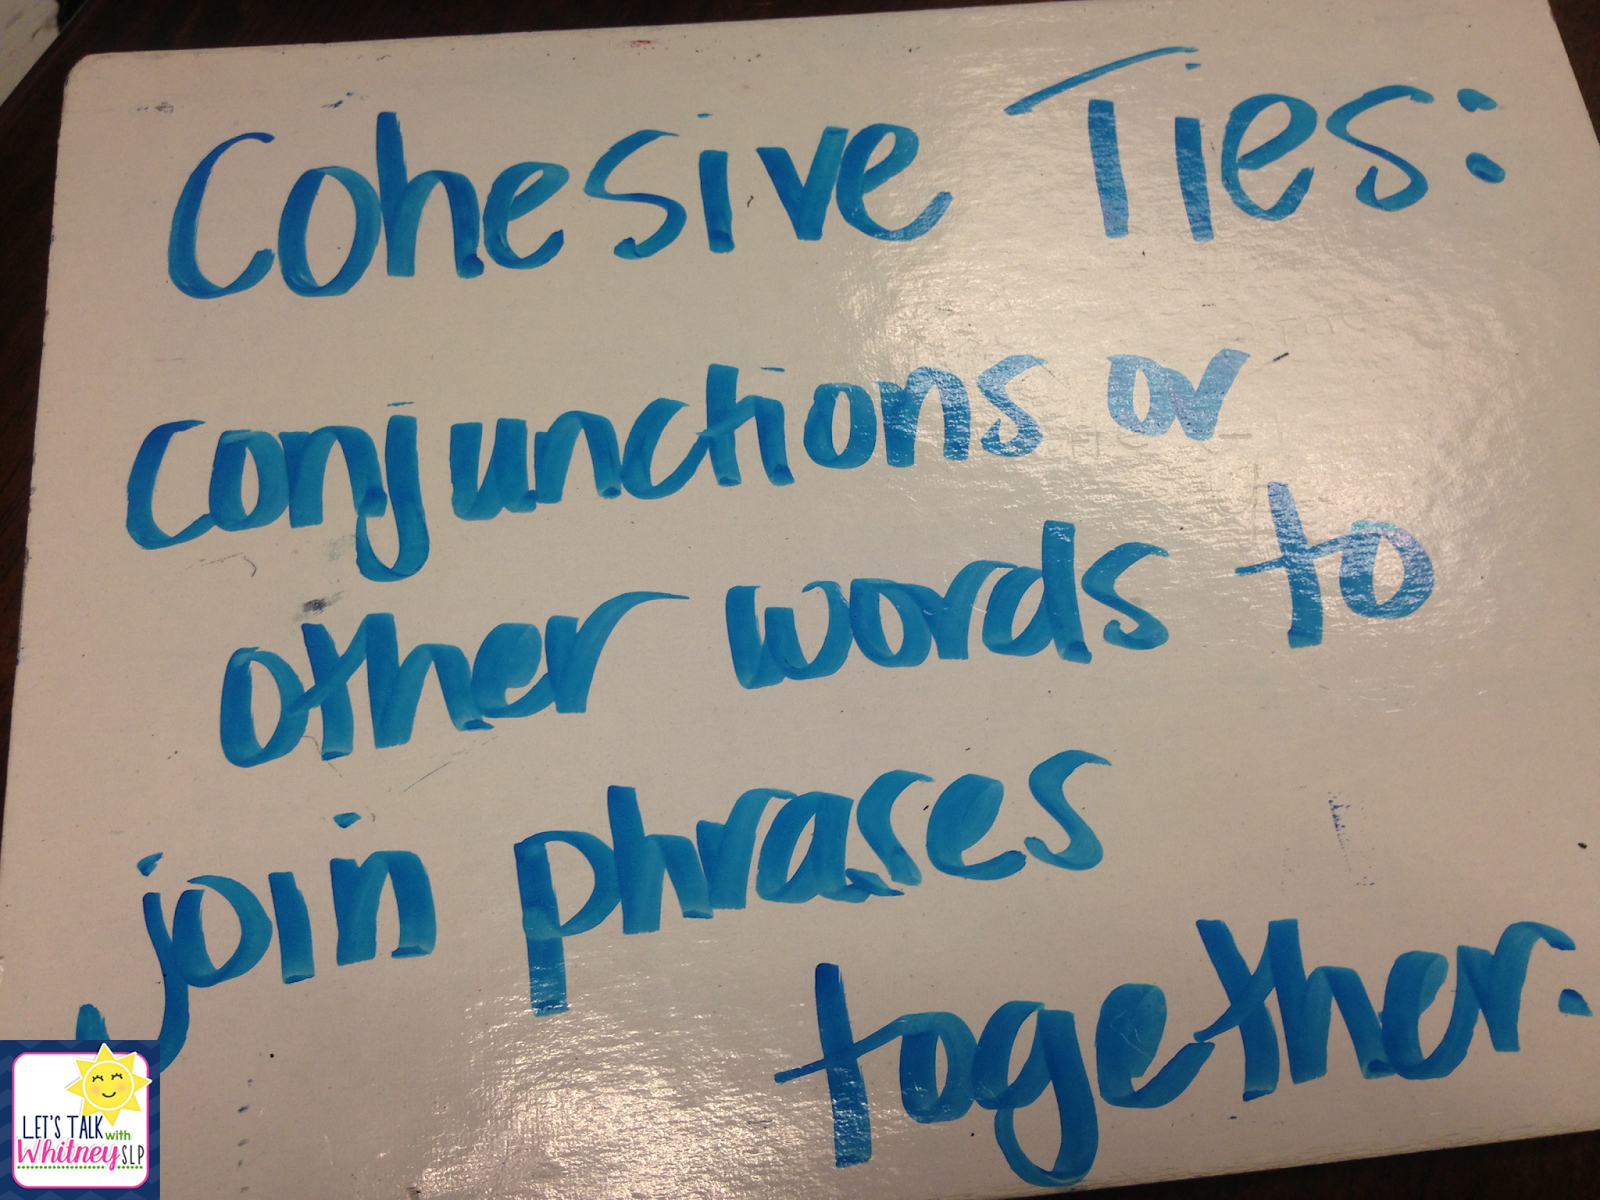 Cohesive Ties:
conjunctions or
other words to
join phrases
together.
LET'S TALK
with
Whitney SLP